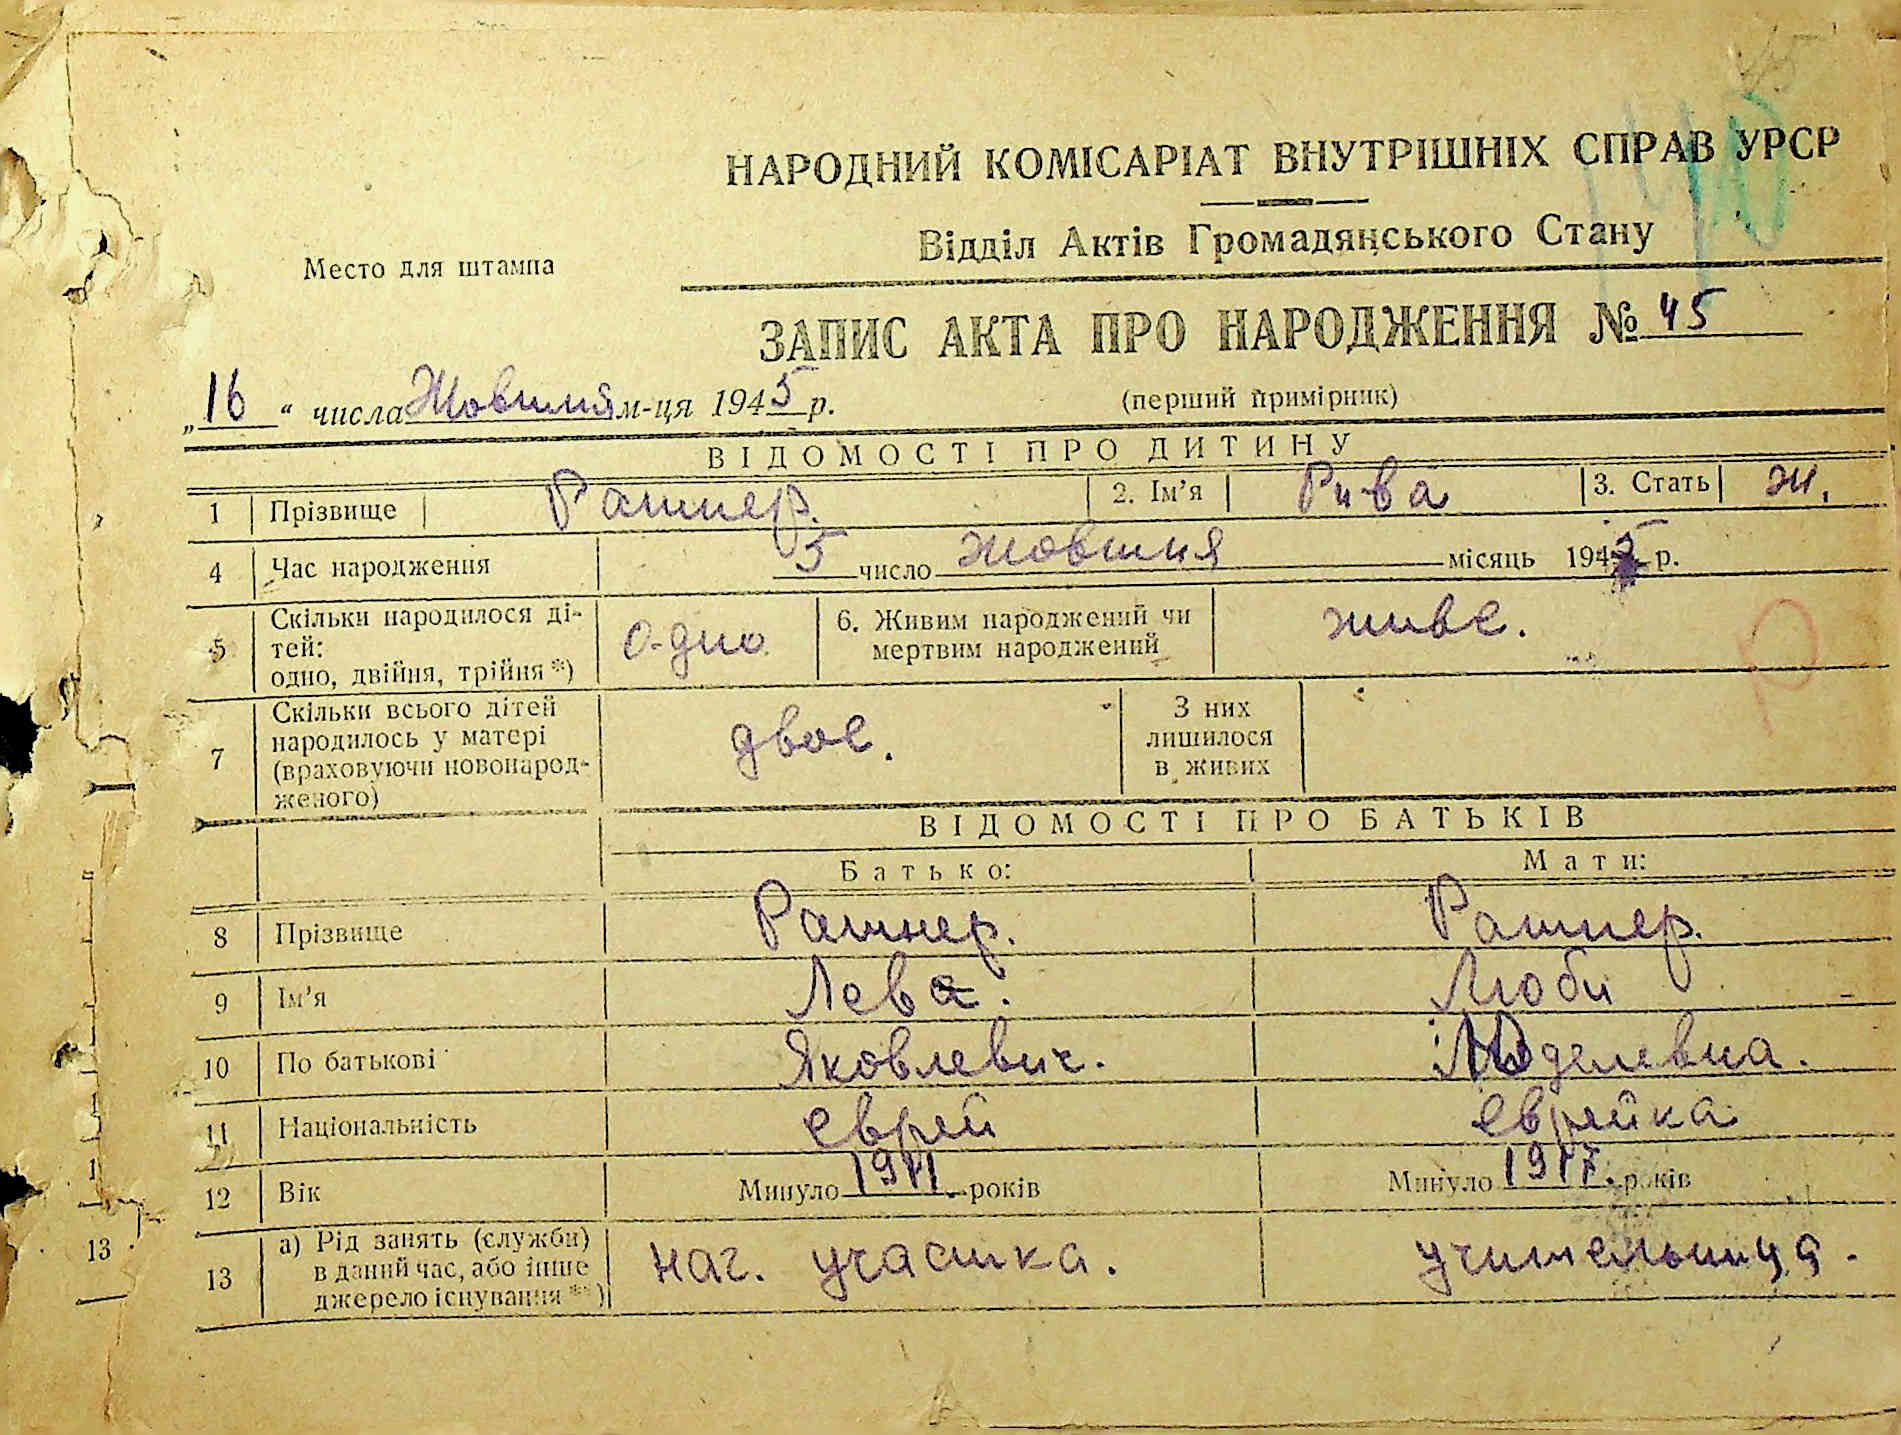 НАРОДНИЙ КОМІСАРІАТ ВНУТРІШНІХ СПРАВ УРСР
Відділ Актів Громадянського Стану
Место для штампа
ЗАПИС АКТА ПРО НАРОДЖЕННЯ № 45
„16“ числа Жовтня м-ця 1945 р.
(перший примірник)
ВІДОМОСТІ ПРО ДИТИНУ
1 Прізвище Ратнер. 2. Ім'я Рива 3. Стать ж.
4 Час народження 5 число жовтня місяць 1945 р.
5 Скільки народилося ді-
тей:
одно, двійня, трійня *) одно 6. Живим народжений чи
мертвим народжений живе.
7 Скільки всього дітей
народилось у матері
(враховуючи новонарод-
женого) двое. З них
лишилося
в живих
ВІДОМОСТІ ПРО БАТЬКІВ
Батько: Мати:
8 Прізвище Ратнер. Ратнер.
9 Ім'я Лева. Люби
10 По батькові Яковлевич.
11 Національність еврей еврейка
12 Вік Минуло 1911. років Минуло 1917. років
13 13 а) Рід занять (служби)
в даний час, або інше
джерело існування **) наг. участка. учительниця.